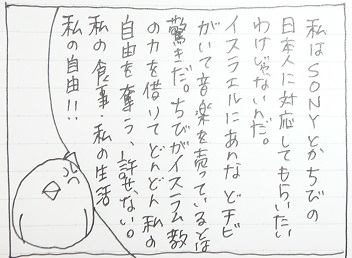 私はSONYとかちびの
日本人に対応してもらいたい
わけじゃないんだ。
イスラエルにあんなどチビ
がいて音楽を売っているとは
驚きだ。ちびがイスラム教
の力を借りてどんどん私の
自由を奪う、許せない。
私の食事・私の生活
私の自由!!